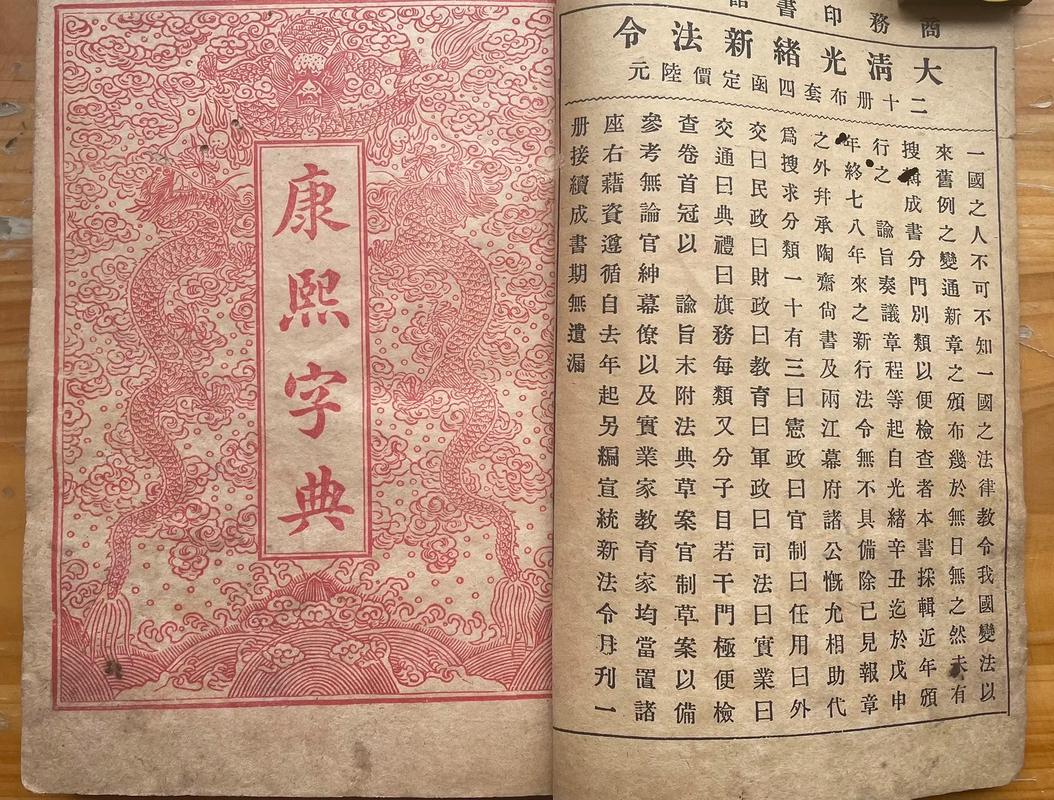 商務印書
大清光緒新法令
二十册布套四函定價陸元
一國之人不可不知一國之法律教令我國變法以
來舊例之變通新章之頒布幾於無日無之然未有
搜成書分門別類以便檢查者本書採輯近年頒
行之 諭旨奏議章程等起自光緒辛丑迄於戊申
年終七八年來之新行法令無不具備除已見報章
之外幷承陶齋尙書及兩江幕府諸公慨允相助代
爲搜求分類一十有三曰憲政曰官制曰任用曰外
交曰民政曰財政曰教育曰軍政曰司法曰實業曰
交通曰典禮曰旗務每類又分子目若干門極便檢
查卷首冠以 諭旨末附法典草案官制草案以備
參考無論官紳幕僚以及實業家教育家均當置諸
座右藉資遵循自去年起另編宣統新法令月刊一
册接續成書期無遺漏
康熙字典